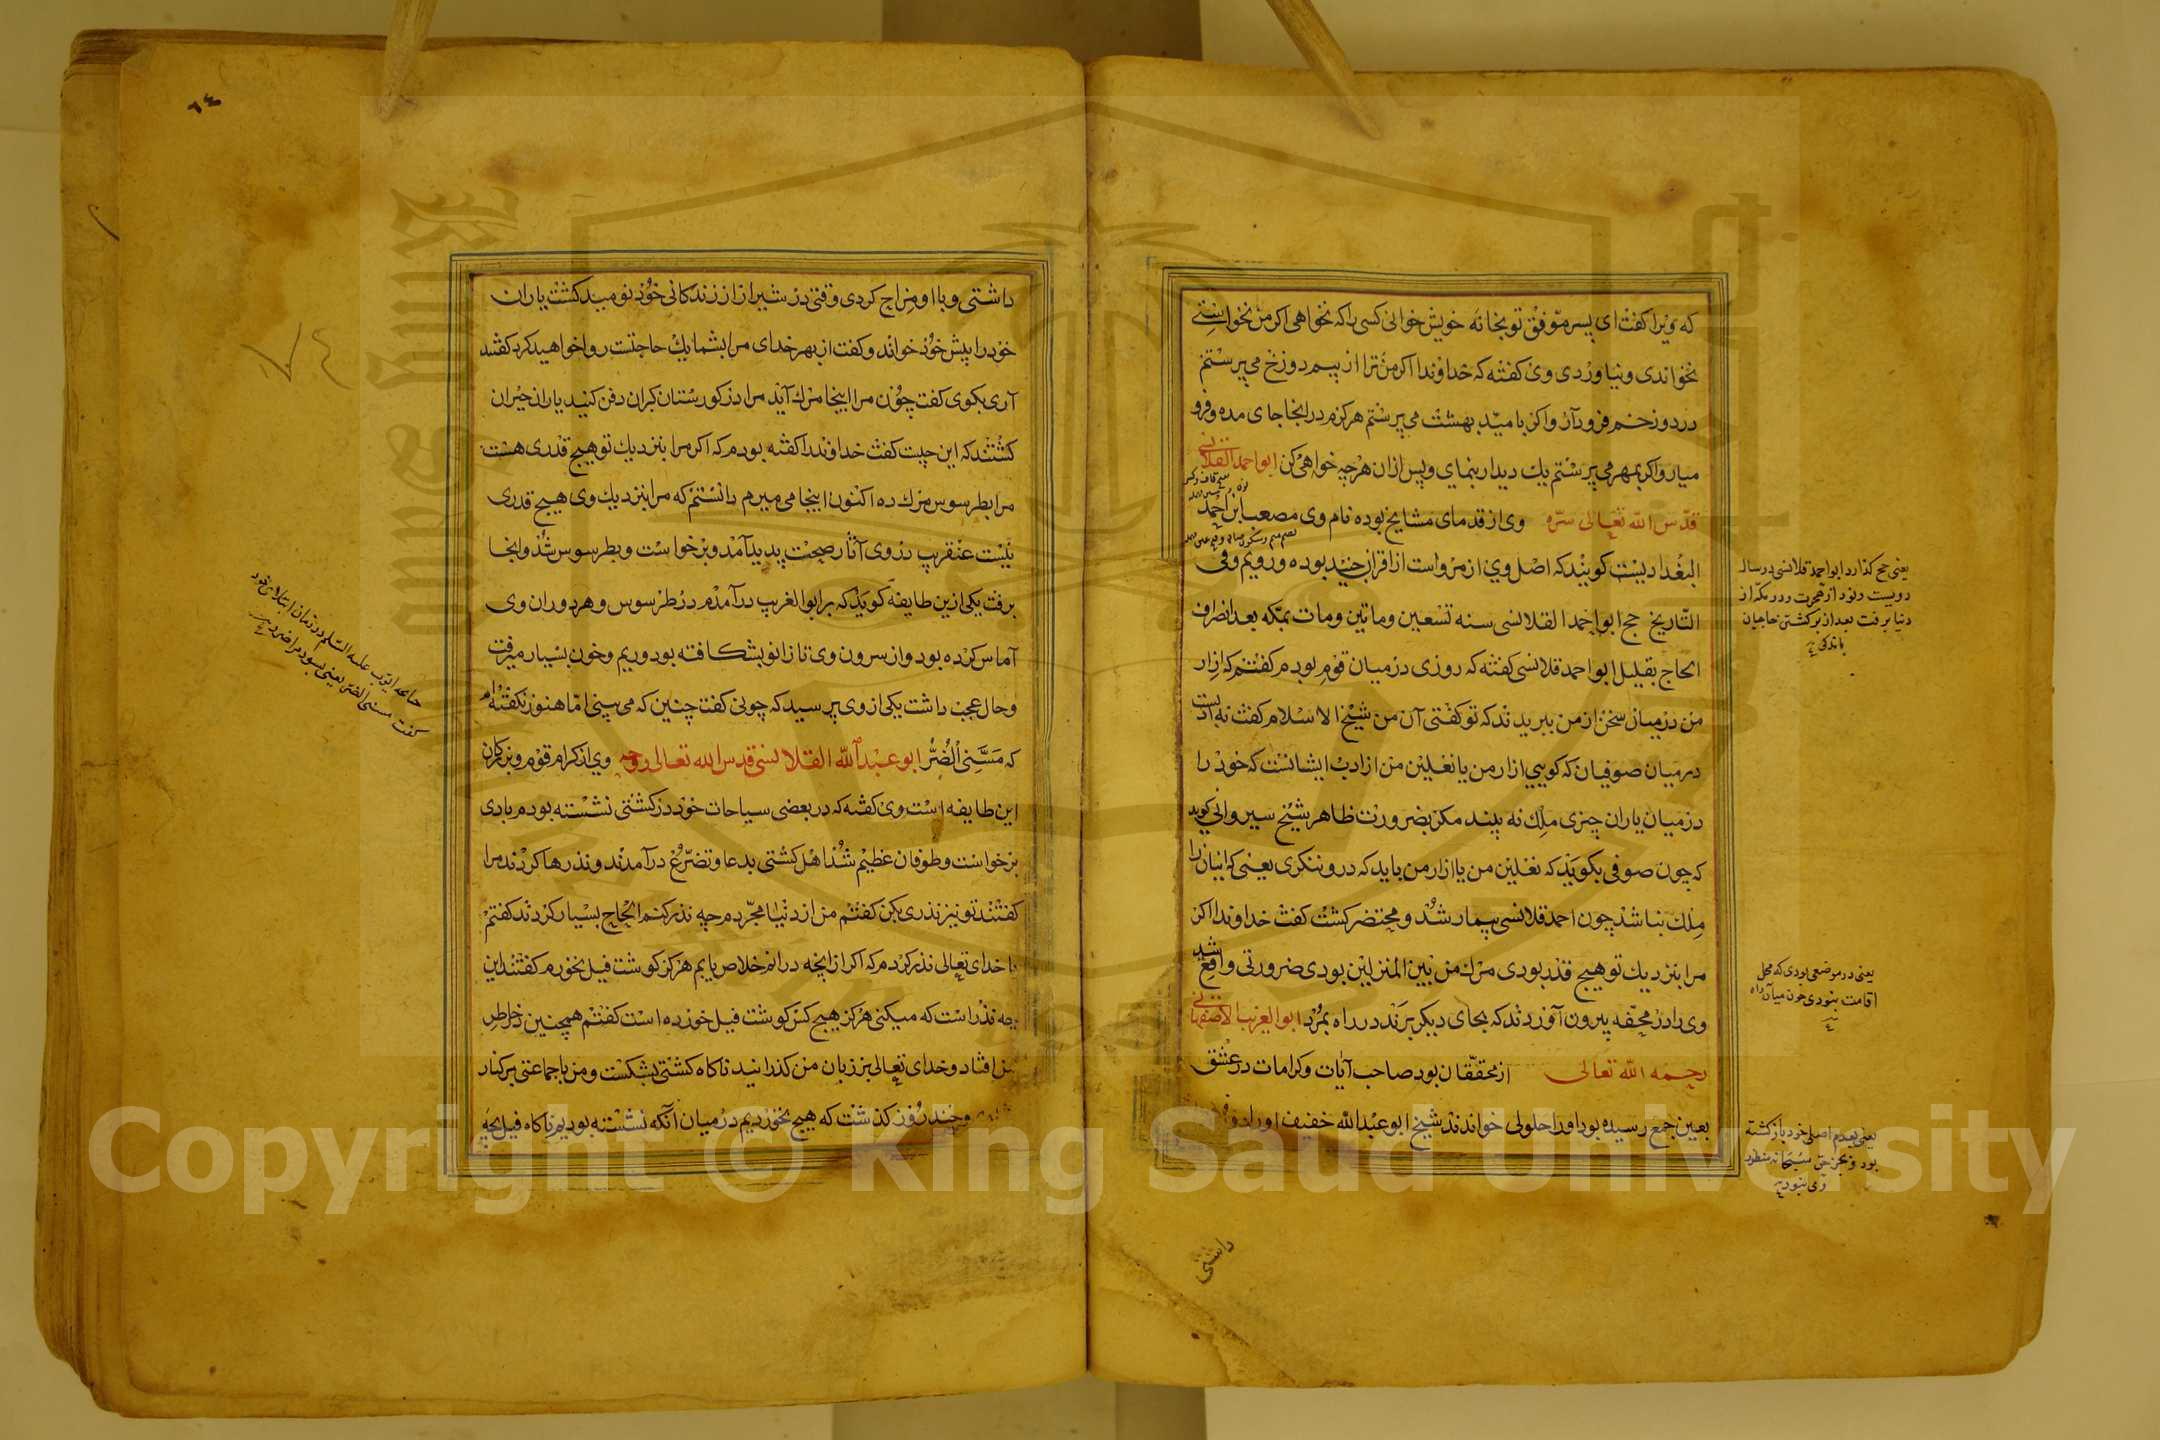 که ویرا کفت ای پسر موفق تو بخانه خویش خوانی کسی را که نخواهی اکر من نخواستی
نخواندی ونیاوردی وی کفته که خداوندا اکر من ترا از بیم دوزخ می پرستم
در دوزخم فرود آر واکر بامید بهشت می پرستم هرکزم در انجا جای مده وفرو
میار واکر بمهر می پرستم یك دیدار بنمای وپس ازان هرچه خواهی کن ابو احمد القلانسی
قدس الله تعالی سره وی از قدمای مشایخ بوده نام وی مصعب ابن احمد
البغدادیست کویند که اصل وی از مرو است از اقران جنید بوده ورویم وفی
التاریخ حج ابو احمد القلانسی سنه تسعین وماتین ومات بمکه بعد انصراف
الحاج بقلیل ابو احمد قلانسی کفته که روزی در میان قوم بودم کفتم که ازار
من در میان سخن از من ببریدند که تو کفتی آن من شیخ الاسلام کفت نه ادبست
در میان صوفیان که کویی ازار من یا نعلین من از ادب ایشانست که خود را
در میان یاران چیزی ملك نه بیند مکر بضرورت ظاهر شیخ سیروانی کوید
که چون صوفی بکوید که نعلین من یا ازار من باید که درو ننکری یعنی که انیانرا
ملك نباشد چون احمد قلانسی بیمار شد ومحتضر کشت کفت خداوندا اکر
مرا بنزدیك تو هیچ قدر بودی مرك من بین المنزلین بودی ضرورتی واقع شد
وی را در محفه بیرون آوردند که بجای دیکر برند در راه بمرد ابو الغریب الاصفهانی
رحمه الله تعالی از محققان بود صاحب آیات وکرامات در عشق
بعین جمع رسیده بود اورا حلولی خواندند شیخ ابو عبد الله خفیف اورا
داشتی
یعنی حج کذارد ابو احمد قلانسی در سال
دویست ونود از هجرت ودر مکه از
دنیا برفت بعد از برکشتن حاجیان
باندکی
یعنی در موضعی بودی که محل
اقامت نبودی چون میان راه
یعنی بعدم اصلی خود باز کشته
بود وبجز حق سبحانه منظور
وی نبود
٦٤
٧٤
داشتی وبا او مزاح کردی وقتی در شیراز از زندکانی خود نومید کشت یاران
خود را پیش خود خواند وکفت از بهر خدای مرا بشما یك حاجتست روا خواهید کرد کفتند
آری بکوی کفت چون مرا اینجا مرك آید مرا در کورستان کبران دفن کنید یاران حیران
کشتند که این چیست کفت خداوندرا کفته بودم که اکر مرا بنزدیك تو هیچ قدری هست
مرا بطرسوس مرك ده اکنون اینجا می میرم دانستم که مرا بنزدیك وی هیچ قدری
نیست عنقریب در وی آثار صحت پدید آمد وبرخواست وبطرسوس شد وانجا
برفت یکی ازین طایفه کوید که بر ابو الغریب درآمدم در طرسوس وهر دو ران وی
آماس کرده بود واز سرون وی تا زانو بشکافته بود وریم وخون بسیار میرفت
وحال عجب داشت یکی از وی پرسید که چونی کفت چنین که می بینی اما هنوز نکفته ام
که مسنی الضر ابو عبد الله القلانسی قدس الله تعالی روحه وی از کرام قوم وبزرکان
این طایفه است وی کفته که در بعضی سیاحات خود در کشتی نشسته بودم بادی
برخواست وطوفان عظیم شد اهل کشتی بدعا وتضرع درآمدند ونذرها کردند مرا
کفتند تو نیز نذری بکن کفتم من از دنیا مجردم چه نذر کنم الحاح بسیار کردند کفتم
با خدای تعالی نذر کردم که اکر از انچه در انم خلاص یابم هرکز کوشت فیل نخورم کفتند این
چه نذر است که میکنی هرکز هیچ کس کوشت فیل خورده است کفتم همچنین در خاطر
من افتاد وخدای تعالی بر زبان من کذرانید ناکاه کشتی بشکست ومن با جماعتی برکنار
وچند روز کذشت که هیچ نخوردیم در میان آنکه نشسته بودیم ناکاه فیل بچه
ایوب علیه السلام در زمان ابتلای خود
کفت مسنی الضر یعنی بسود مرا ضرر
Copyright © King Saud University